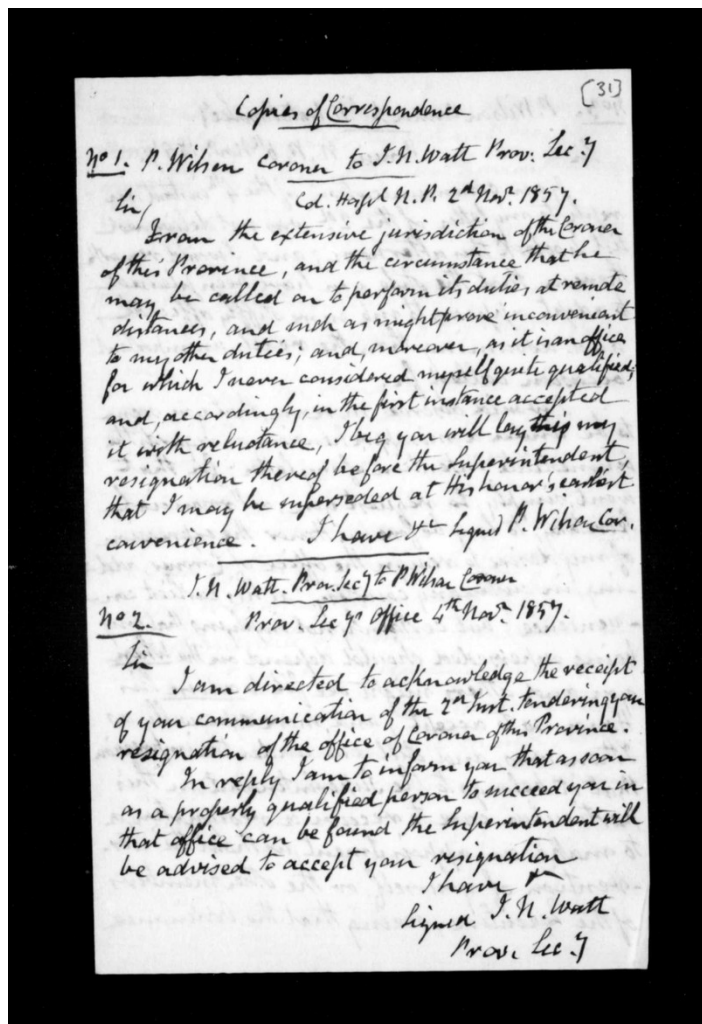 (31)
Copies of Correspondence
No 1. P. Wilson Coroner to I. N. Watt Prov. Sec.y
Col. Hospl N. P. 2nd Novr. 1857.
Sir/
From the extensive jurisdiction of the Coroner
of this Province, and the circumstance that he
may be called on to perform its duties at remote
distances, and such as might prove inconvenient
to my other duties; and, moreover, as it is an office
for which I never considered myself quite qualified,
and, accordingly, in the first instance accepted
it with reluctance, I beg you will lay this my
resignation thereof before the Superintendent,
that I may be superseded at His honor's earliest
convenience. I have &c Signed P. Wilson Cor.
I. N. Watt. Prov. Sec.y to P Wilson Coroner
No 2. Prov. Sec.ys Office 4th Novr. 1857.
Sir
I am directed to acknowledge the receipt
of your communication of the 2nd Inst. tendering your
resignation of the office of Coroner of this Province.
In reply I am to inform you that as soon
as a properly qualified person to succeed you in
that office can be found the Superintendent will
be advised to accept your resignation
I have &c
Signed I. N. Watt
Prov. Sec.y